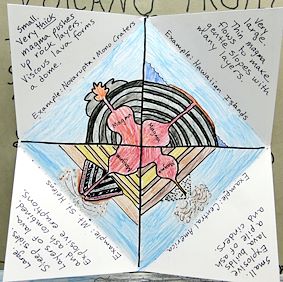 Small
Very thick
magma pushes
up rock layers.
Viscous lava forms
a dome.
Example: Novarupta; Mono Craters
Very
large.
Thin magma
flows to make
slopes with
many layers.
Example: Hawaiian Islands
Magma
Magma
Magma
Magma
Example: Mt. St. Helens
Large
Steep sides
Layers of
lava, ash
Explosive eruptions.
Example: Central America
Small.
Explosive
lava builds
a pile of ash
and cinders